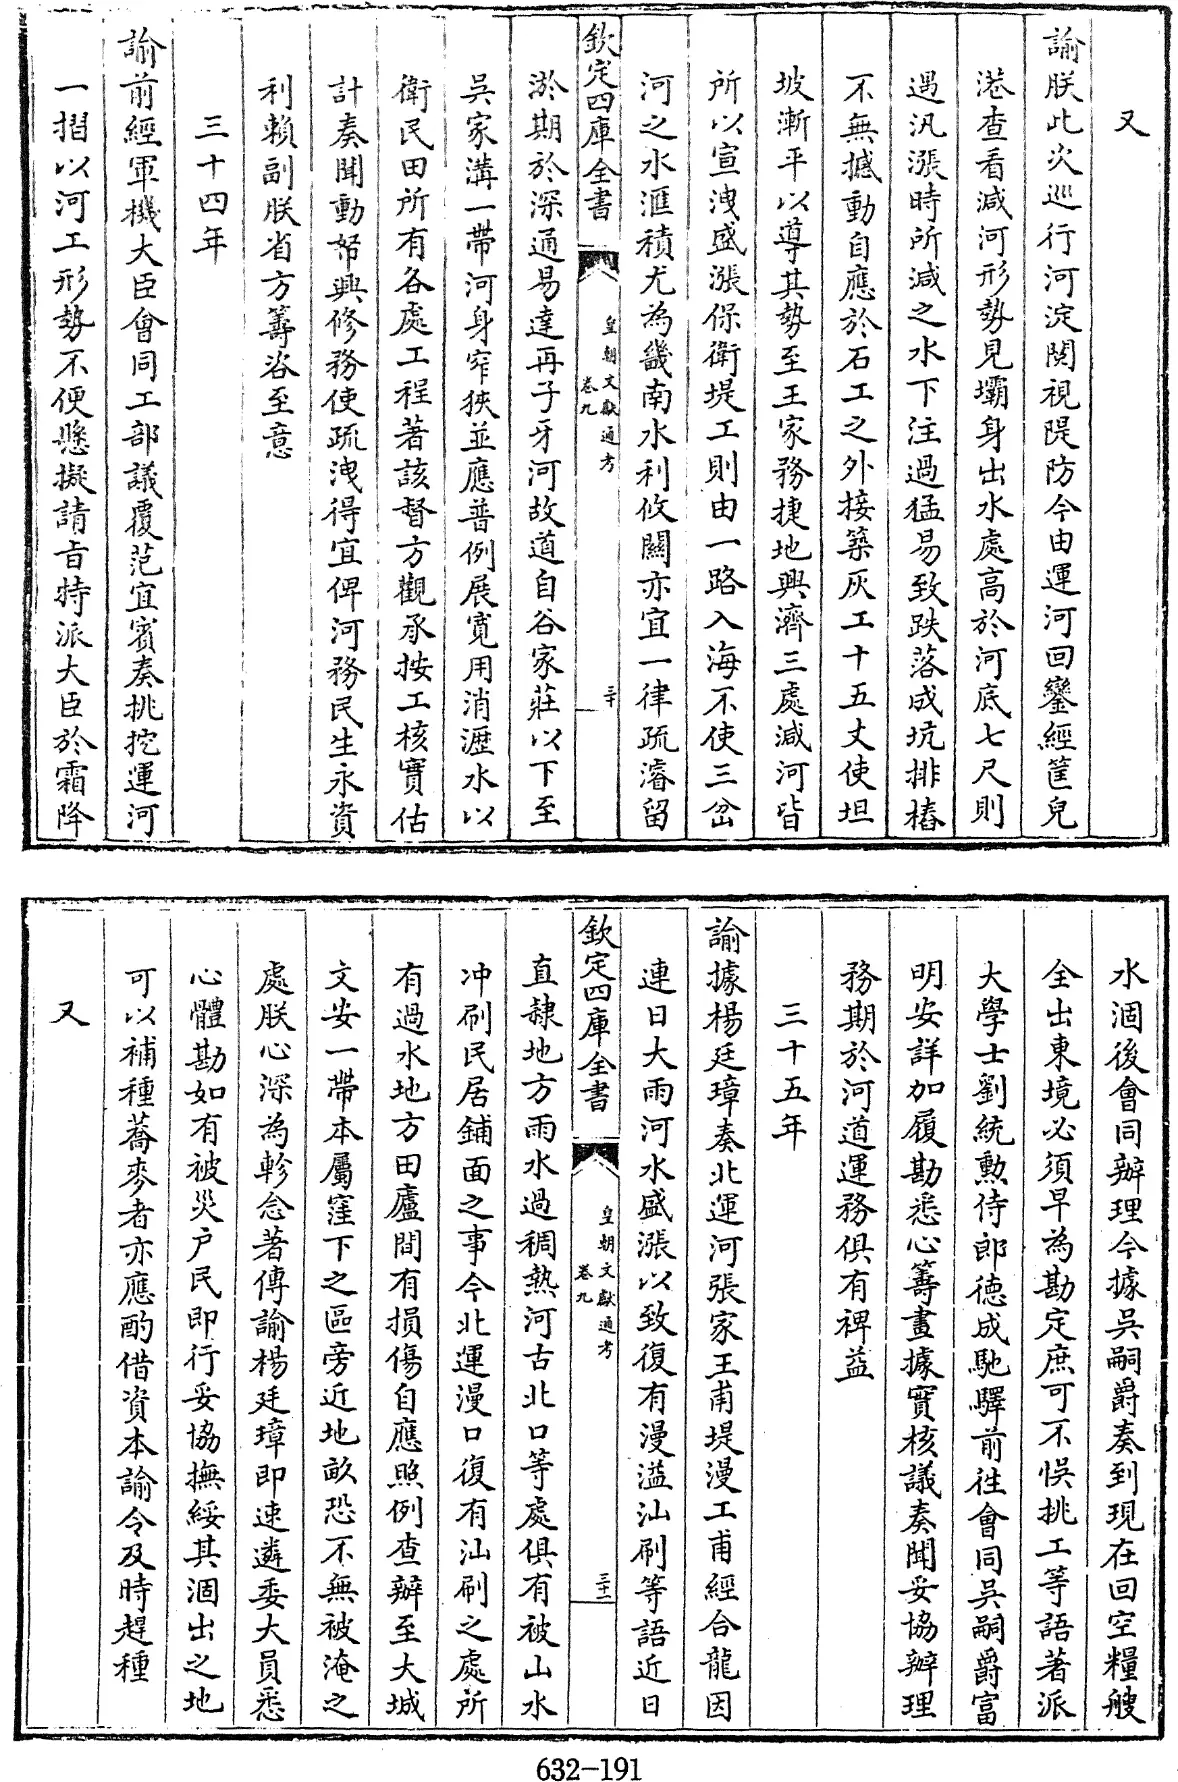 又
諭朕此次巡行河淀閱視隄防今由運河回鑾經筐兒
港查看減河形勢見壩身出水處高於河底七尺則
遇汛漲時所減之水下注過猛易致跌落成坑排樁
不無撼動自應於石工之外接築灰工十五丈使坦
坡漸平以導其勢至王家務捷地興濟三處減河皆
所以宣洩盛漲保衛堤工則由一路入海不使三岔
河之水滙積尤為畿南水利攸關亦宜一律疏濬留
欽定四庫全書
皇朝文獻通考
卷九
三十
淤期於深通易達再子牙河故道自谷家莊以下至
吳家溝一帶河身窄狹並應普例展寬用消瀝水以
衛民田所有各處工程著該督方觀承按工核實估
計奏聞動帑興修務使疏洩得宜俾河務民生永資
利賴副朕省方籌咨至意
三十四年
諭前經軍機大臣會同工部議覆范宜賓奏挑挖運河
一摺以河工形勢不便懸擬請旨特派大臣於霜降
水涸後會同辦理今據吳嗣爵奏到現在回空糧艘
全出東境必須早為勘定庶可不悞挑工等語著派
大學士劉統勲侍郎德成馳驛前往會同吳嗣爵富
明安詳加履勘悉心籌畫據實核議奏聞妥協辦理
務期於河道運務俱有裨益
三十五年
諭據楊廷璋奏北運河張家王甫堤漫工甫經合龍因
連日大雨河水盛漲以致復有漫溢汕刷等語近日
欽定四庫全書
皇朝文獻通考
卷九
三十一
直隸地方雨水過稠熱河古北口等處俱有被山水
沖刷民居鋪面之事今北運漫口復有汕刷之處所
有過水地方田廬間有損傷自應照例查辦至大城
文安一帶本屬窪下之區旁近地畝恐不無被淹之
處朕心深為軫念著傳諭楊廷璋即速遴委大員悉
心體勘如有被災户民即行妥協撫綏其涸出之地
可以補種蕎麥者亦應酌借資本諭令及時趕種
又
632-191